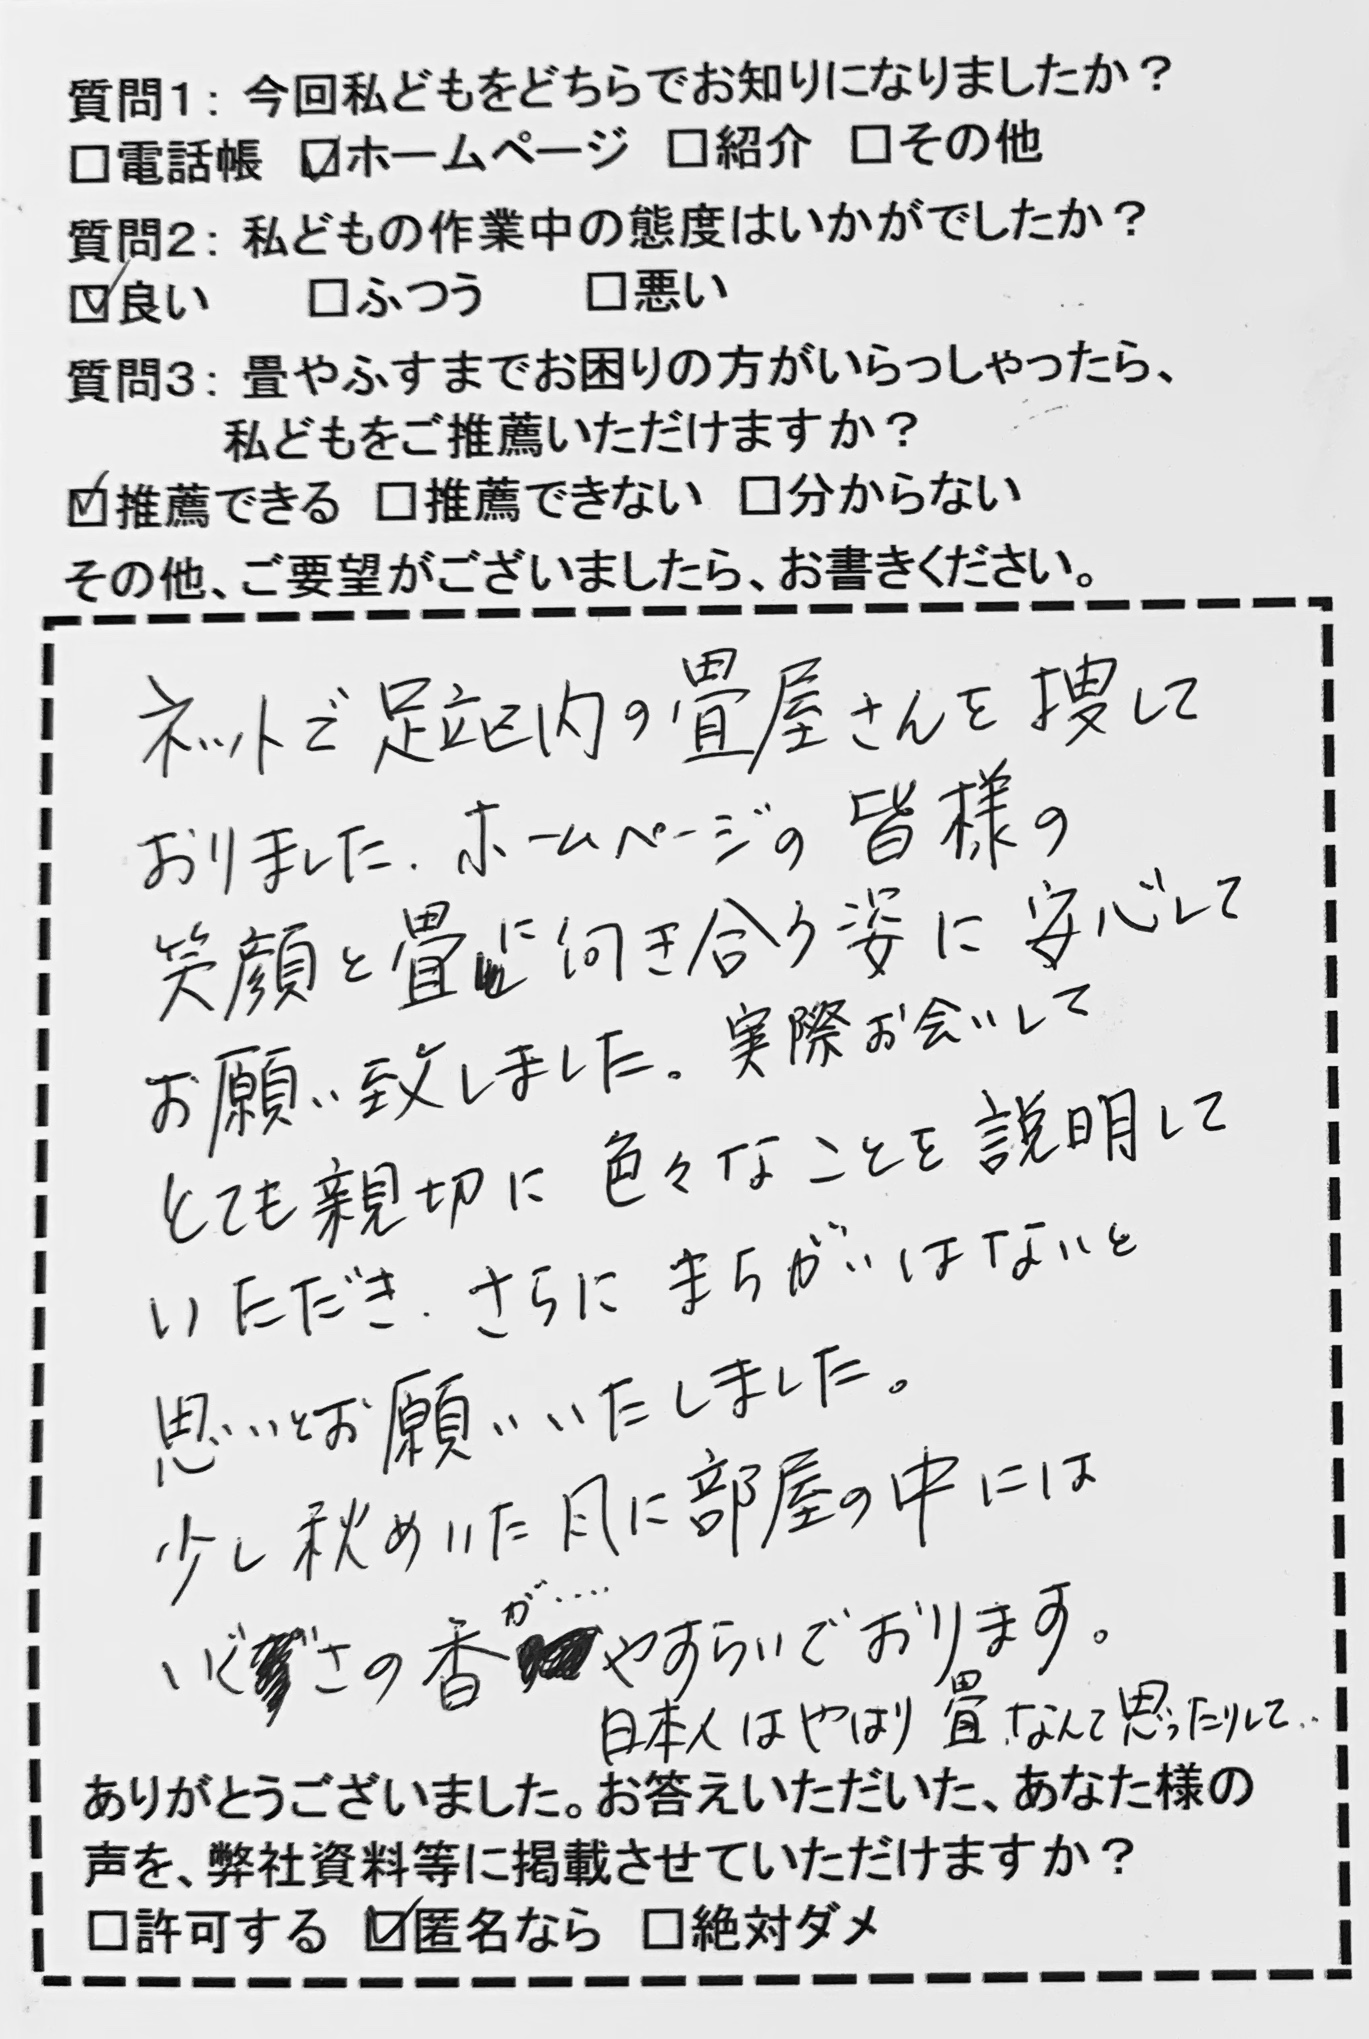 質問1: 今回私どもをどちらでお知りになりましたか？
□電話帳 ☑ホームページ □紹介 □その他
質問2: 私どもの作業中の態度はいかがでしたか？
☑良い □ふつう □悪い
質問3: 畳やふすまでお困りの方がいらっしゃったら、
私どもをご推薦いただけますか？
☑推薦できる □推薦できない □分からない
その他、ご要望がございましたら、お書きください。
ネットで足立区内の畳屋さんを捜して
おりました. ホームページの皆様の
笑顔と畳に向き合う姿に安心して
お願い致しました。実際お会いして
とても親切に色々なことを説明して
いただき. さらにまちがいはないと
思いとお願いいたしました。
少し秋めいた風に部屋の中には
いぐさの香が‥‥やすらいでおります。
日本人はやはり畳なんて思ったりして‥
ありがとうございました。お答えいただいた、あなた様の
声を、弊社資料等に掲載させていただけますか？
□許可する ☑匿名なら □絶対ダメ